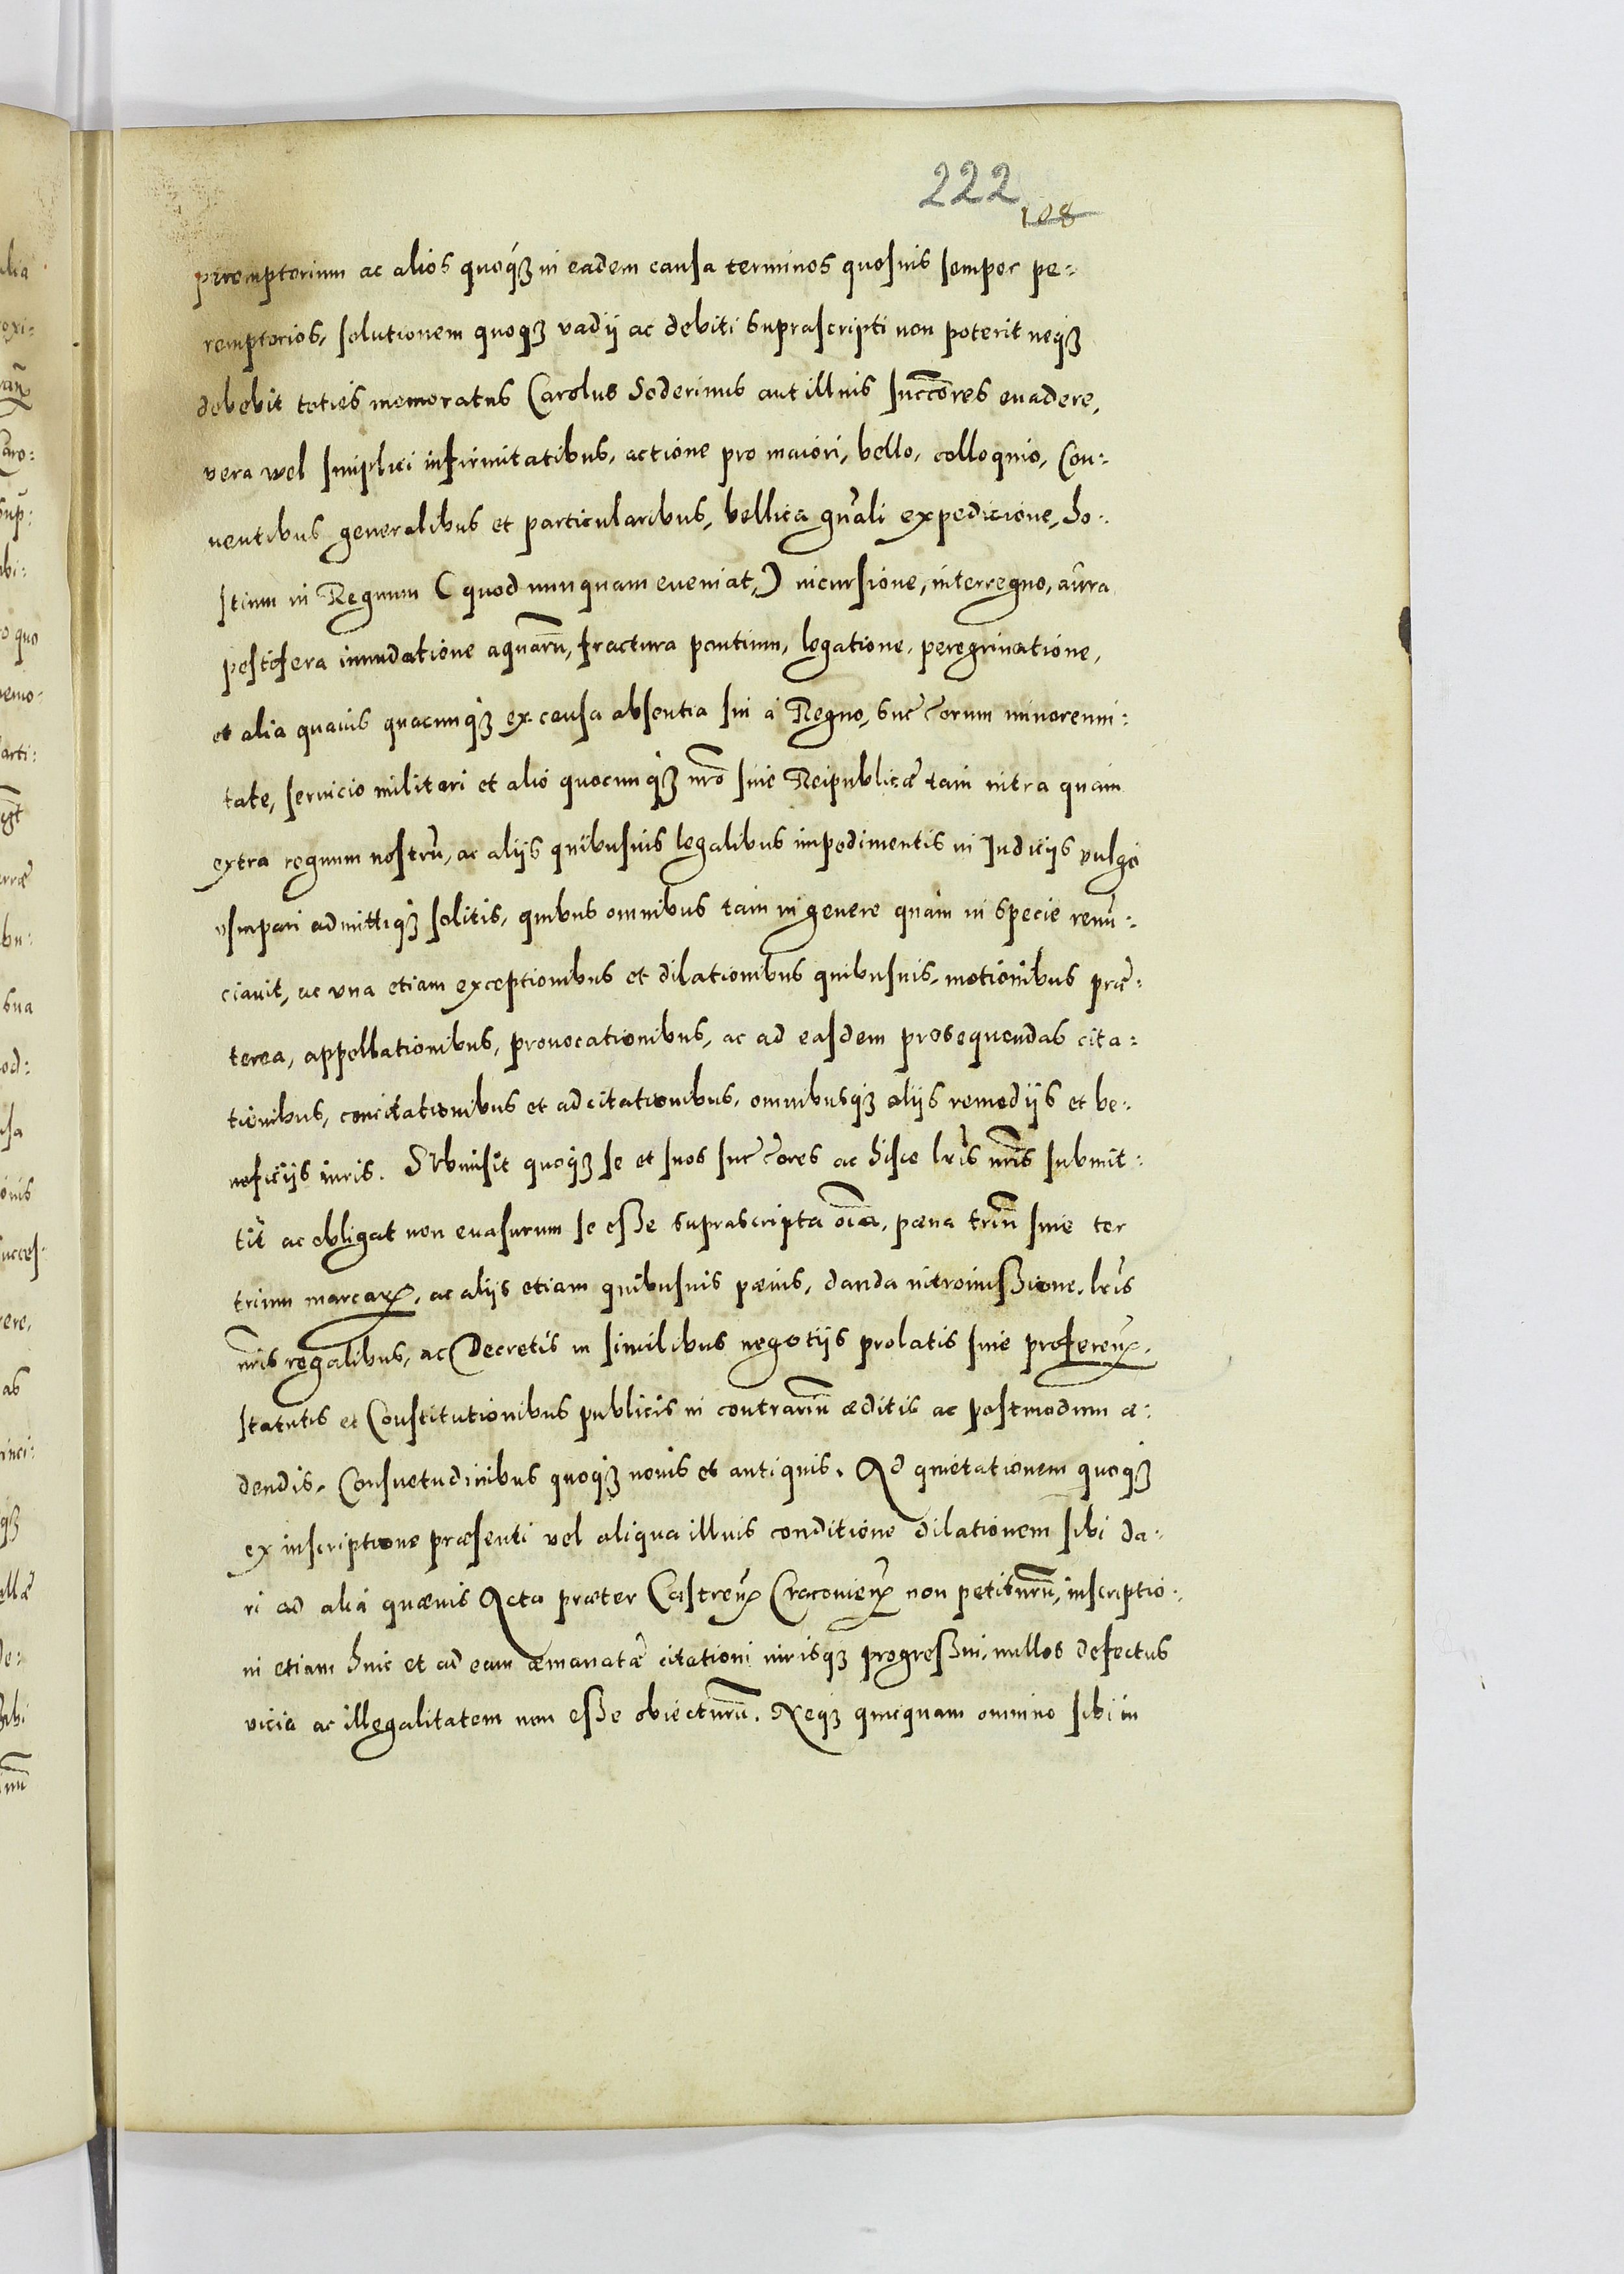 222
108
peremptorium ac alios quoq₃ in eadem causa terminos quosuis semper pe:
remptorios, solutionem quoq₃ vadij ac debiti suprascripti non poterit neq₃
debebit toties memoratus Carolus Soderinus aut illius succōres euadere,
vera wel simplici infirmitatibus, actione pro maiori, bello, colloquio, Con:
uentibus generalibus et particularibus, bellica gn̄ali expedicione, ho:
stium in Regnum (quod nunquam eueniat,) incursione, interregno, aura
pestifera inundatione aquarū, fractura pontium, legatione, peregrinatione,
et alia quauis quacunq₃ ex causa absentia sui à Regno, succ̄orum minorenni:
tate, seruicio militari et alio quocunq₃ nr̄o siue Reipublicæ tam intra quam
extra regnum nostrū, ac alijs quibusuis legalibus impedimentis in Judicijs vulgo
vsurpari admittiq₃ solitis, quibus omnibus tam in genere quam in specie renū:
ciauit, ac vna etiam exceptionibus et dilationibus quibusuis, motionibus præ:
terea, appellationibus, prouocationibus, ac ad easdem prosequendas cita:
tionibus, concitationibus et adcitationibus, omnibusq₃ alijs remedijs et be:
neficijs iuris. Submisit quoq₃ se et suos succ̄ores ac hisce lr̄is nr̄is submit:
tit ac obligat non euasurum se esse suprascripta oīa, pæna triū siue ter
trium marcarꝝ, ac alijs etiam quibusuis pænis, danda intromissione, lr̄is
nr̄is regalibus, ac Decretis in similibus negotijs prolatis siue proferen̄ꝝ,
statutis et Constitutionibus publicis in contrariū æditis ac postmodum æ:
dendis, Consuetudinibus quoq₃ nouis et antiquis. Ad quietationem quoq₃
ex inscriptione præsenti vel aliqua illius conditione dilationem sibi da:
ri ad alia quæuis Acta præter Castren̄ꝝ Cracouien̄ꝝ non petiturū, inscriptio:
ni etiam huic et ad eam æmanatæ citationi iurisq₃ progressui, nullos defectus
vicia ac illegalitatem non esse obiecturū. Neq₃ quicquam omnino sibi in